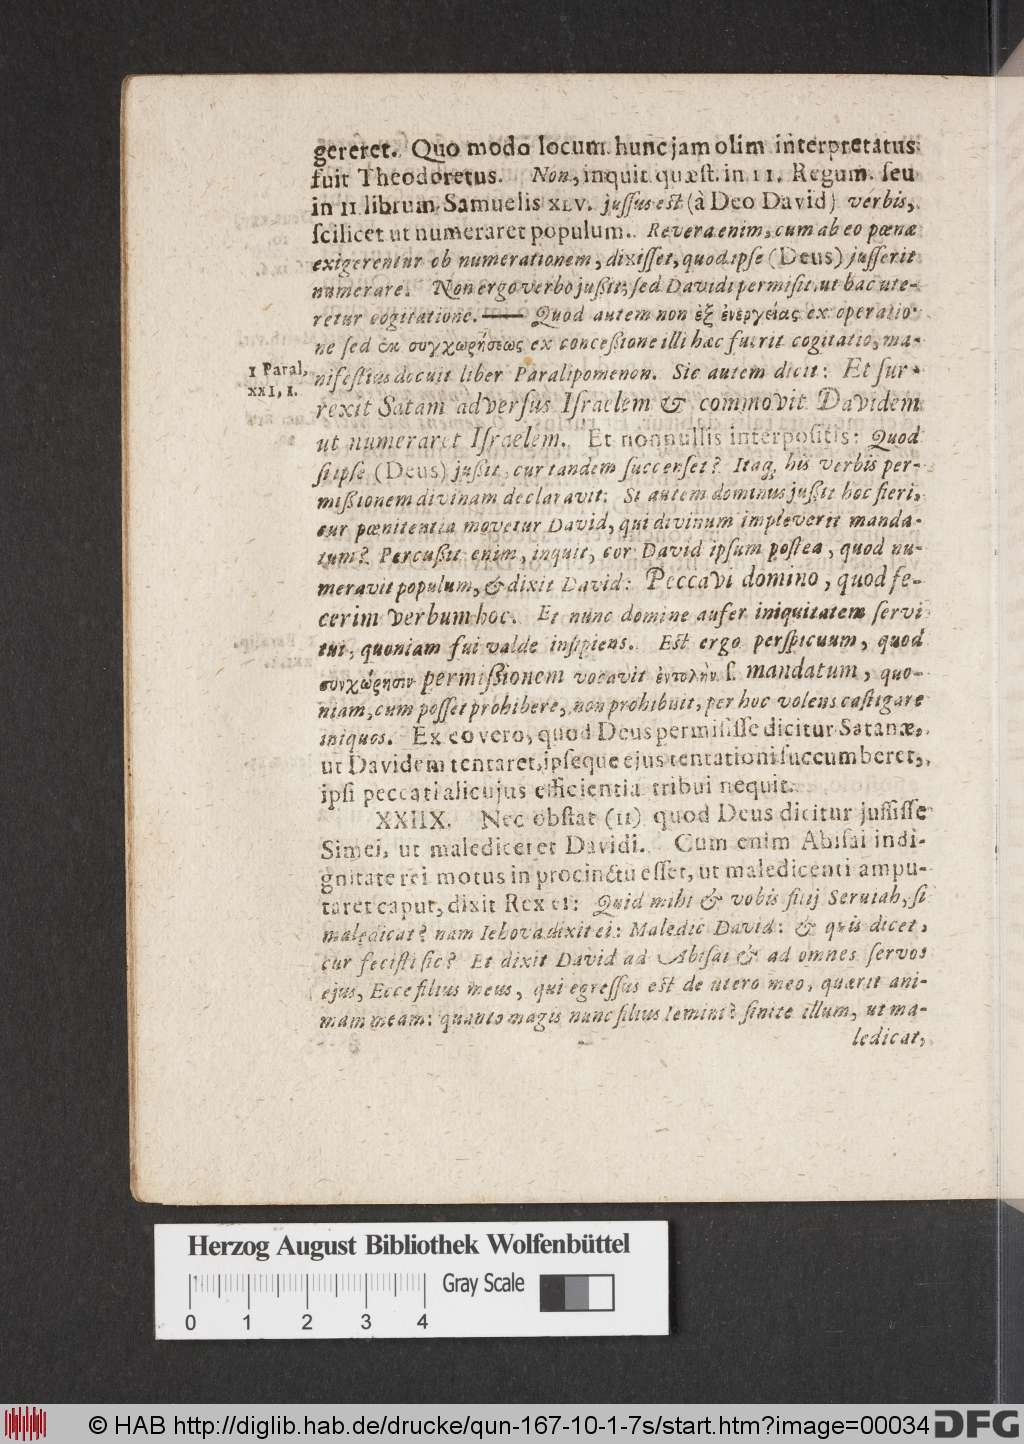 gereret. Quo modo locum hunc jam olim interpretatus
fuit Theodoretus. Non, inquit quæst. in II. Regum. seu
in II librum Samuelis XLV. jussus est (à Deo David) verbis,
scilicet ut numeraret populum. Revera enim, cum ab eo pœnæ
exigerentur ob numerationem, dixisset, quod ipse (Deus) jusserit
numerare. Non ergo verbo jußit; sed Davidi permisit, ut hac ute-
retur cogitatione. —— Quod autem non ἐξ ἐνεργείας ex operatio-
ne sed ἐκ συγχωρήσεως ex conceßione illi hæc fuerit cogitatio, ma-
1 Paral,
XXI, 1.
nifestius docuit liber Paralipomenon. Sic autem dicit: Et sur-
rexit Satam adversus Israelem & commovit Davidem
ut numeraret Israelem. Et nonnullis interpositis: Quod
si ipse (Deus) jußit, cur tandem succenset? Itaq; his verbis per-
mißionem divinam declaravit: Si autem dominus jußit hoc fieri,
cur pœnitentia movetur David, qui divinum impleverit manda-
tum? Percußit enim, inquit, cor David ipsum postea, quod nu-
meravit populum, & dixit David: Peccavi domino, quod fe-
cerim verbum hoc. Et nunc domine aufer iniquitatem servi
tui, quoniam fui valde insipiens. Est ergo perspicuum, quod
συγχώρησιν permißionem vocavit ἐντολὴν s. mandatum, quo-
niam, cum posset prohibere, non prohibuit, per hoc volens castigare
iniquos. Ex eo vero, quod Deus permisisse dicitur Satanæ,
ut Davidem tentaret, ipseque ejus tentationi succumberet,
ipsi peccati alicujus efficientia tribui nequit.
XXIIX. Nec obstat (11) quod Deus dicitur jussisse
Simei, ut malediceret Davidi. Cum enim Abisai indi-
gnitate rei motus in procinctu esset, ut maledicenti ampu-
taret caput, dixit Rex ei: Quid mihi & vobis filij Seruiah, si
maledicat? nam Iehova dixit ei: Maledic David: & quis dicet,
cur fecisti sic? Et dixit David ad Abisai & ad omnes servos
ejus, Ecce filius meus, qui egressus est de utero meo, quærit ani-
mam meam: quanto magis nunc filius Iemini? sinite illum, ut ma-
ledicat,
Herzog August Bibliothek Wolfenbüttel
Gray Scale
0 1 2 3 4
© HAB http://diglib.hab.de/drucke/qun-167-10-1-7s/start.htm?image=00034 DFG